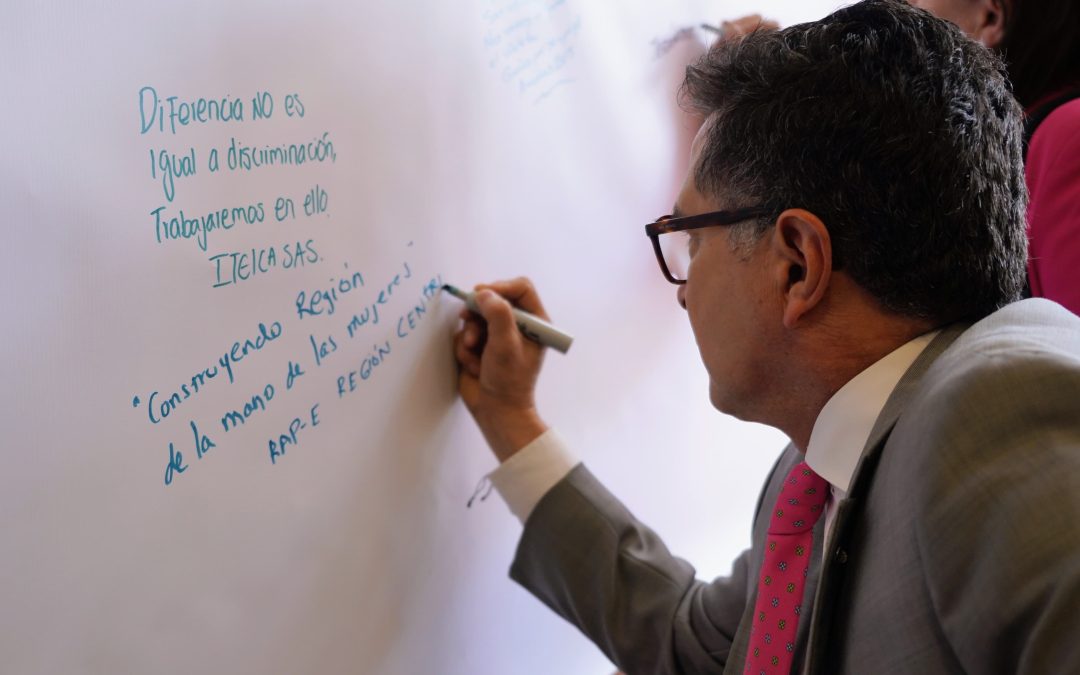 Diferencia NO es
Igual a discriminación,
Trabajaremos en ello.
ITELCA SAS.
"Construyendo Región
de la mano de las mujeres"
RAP-E REGIÓN CENTR